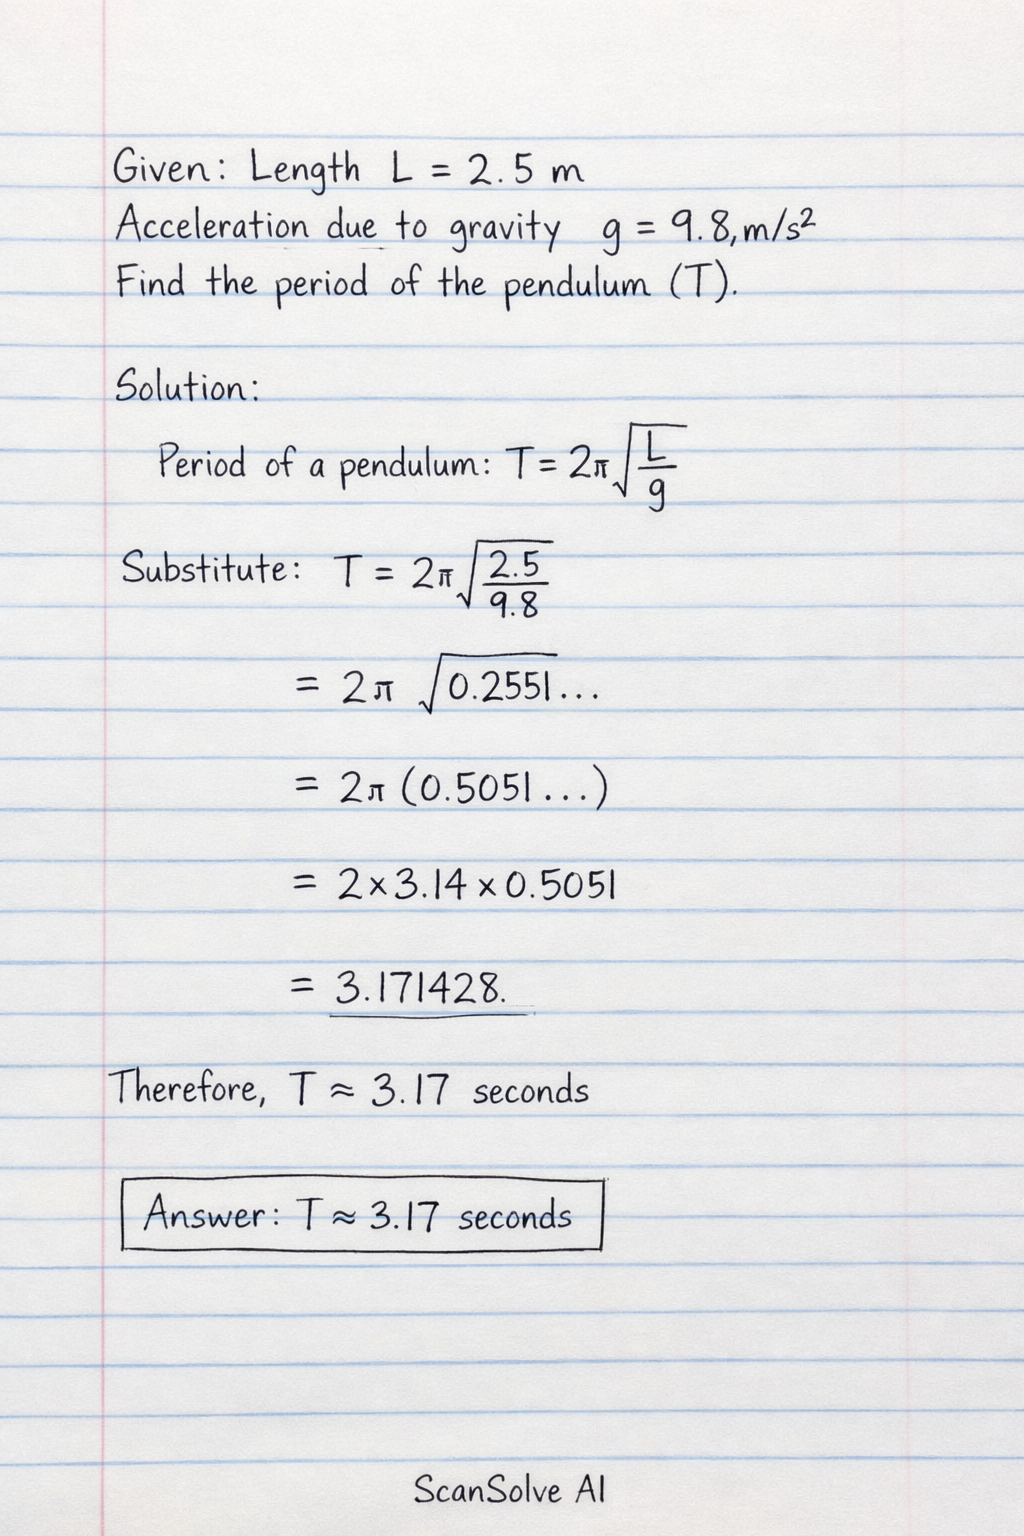 Given: Length L = 2.5 m
Acceleration due to gravity g = 9.8, m/s²
Find the period of the pendulum (T).
Solution:
Period of a pendulum: T = 2π√(L/g)
Substitute: T = 2π√(2.5/9.8)
= 2π √0.2551...
= 2π (0.5051...)
= 2×3.14×0.5051
= 3.171428.
Therefore, T ≈ 3.17 seconds
Answer: T ≈ 3.17 seconds
ScanSolve AI